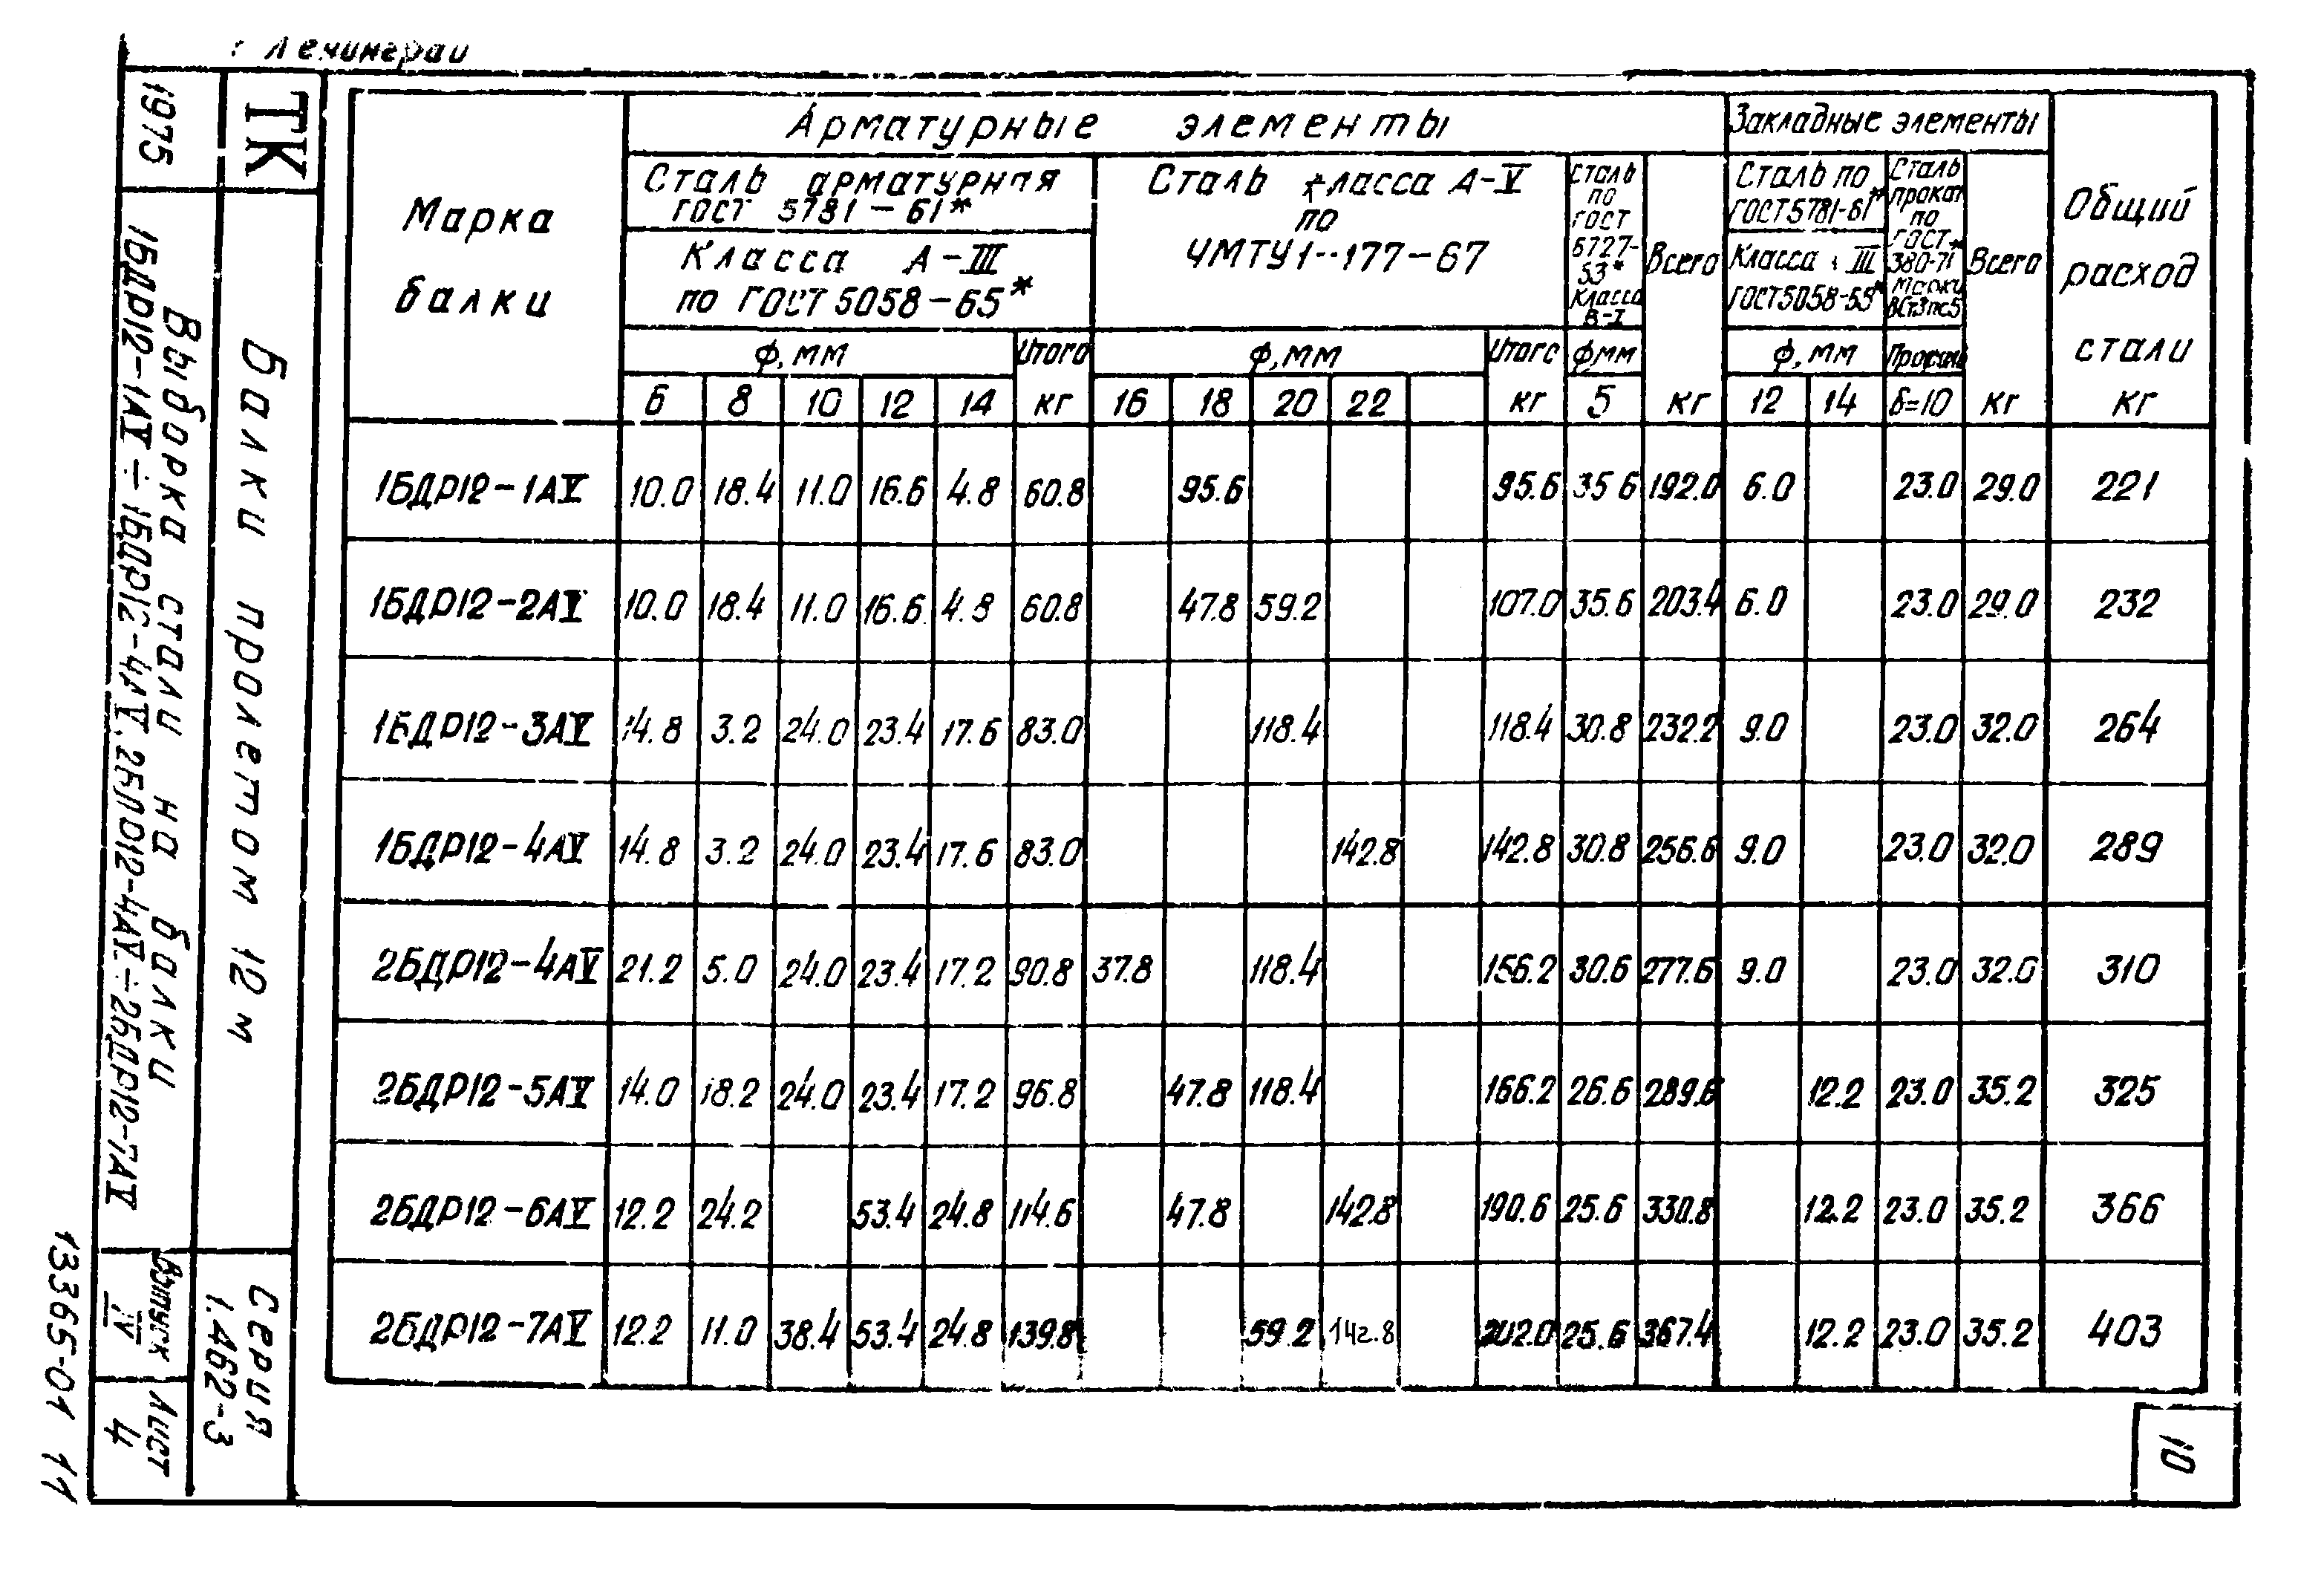 г Ленинград
Арматурные элементы
Закладные элементы
Марка балки
Сталь арматурная ГОСТ 5781-61*
Класса А-III по ГОСТ 5058-65*
Сталь класса А-V по ЧМТУ1-177-67
Сталь по ГОСТ 6727-53* Класса В-I
Всего
Сталь по ГОСТ 5781-61*
Класса III ГОСТ 5058-65*
Сталь прокат по ГОСТ* 380-71 Марки ВСт3пс5
Всего
Общий расход стали кг
ф, мм Итого ф, мм Итого ф мм ф, мм
6 8 10 12 14 кг 16 18 20 22 кг 5 кг 12 14 δ=10 кг
1БДР12-1АV 10.0 18.4 11.0 16.6 4.8 60.8 95.6 95.6 35 6 192.0 6.0 23.0 29.0 221
1БДР12-2АV 10.0 18.4 11.0 16.6 4.8 60.8 47.8 59.2 107.0 35.6 203.4 6.0 23.0 29.0 232
1БДР12-3АV 14.8 3.2 24.0 23.4 17.6 83.0 118.4 118.4 30.8 232.2 9.0 23.0 32.0 264
1БДР12-4АV 14.8 3.2 24.0 23.4 17.6 83.0 142.8 142.8 30.8 256.6 9.0 23.0 32.0 289
2БДР12-4АV 21.2 5.0 24.0 23.4 17.2 90.8 37.8 118.4 156.2 30.6 277.6 9.0 23.0 32.0 310
2БДР12-5АV 14.0 18.2 24.0 23.4 17.2 96.8 47.8 118.4 166.2 26.6 289.6 12.2 23.0 35.2 325
2БДР12-6АV 12.2 24.2 53.4 24.8 114.6 47.8 142.8 190.6 25.6 330.8 12.2 23.0 35.2 366
2БДР12-7АV 12.2 11.0 38.4 53.4 24.8 139.8 59.2 142.8 202.0 25.6 367.4 12.2 23.0 35.2 403
ТК
1975
Балки пролетом 12 м
Выборка стали на балки
1БДР12-1АV ÷ 1БДР12-4АV, 2БДР12-4АV ÷ 2БДР12-7АV
Серия
1.462-3
Выпуск
IV
Лист
4
13365-01 11
10